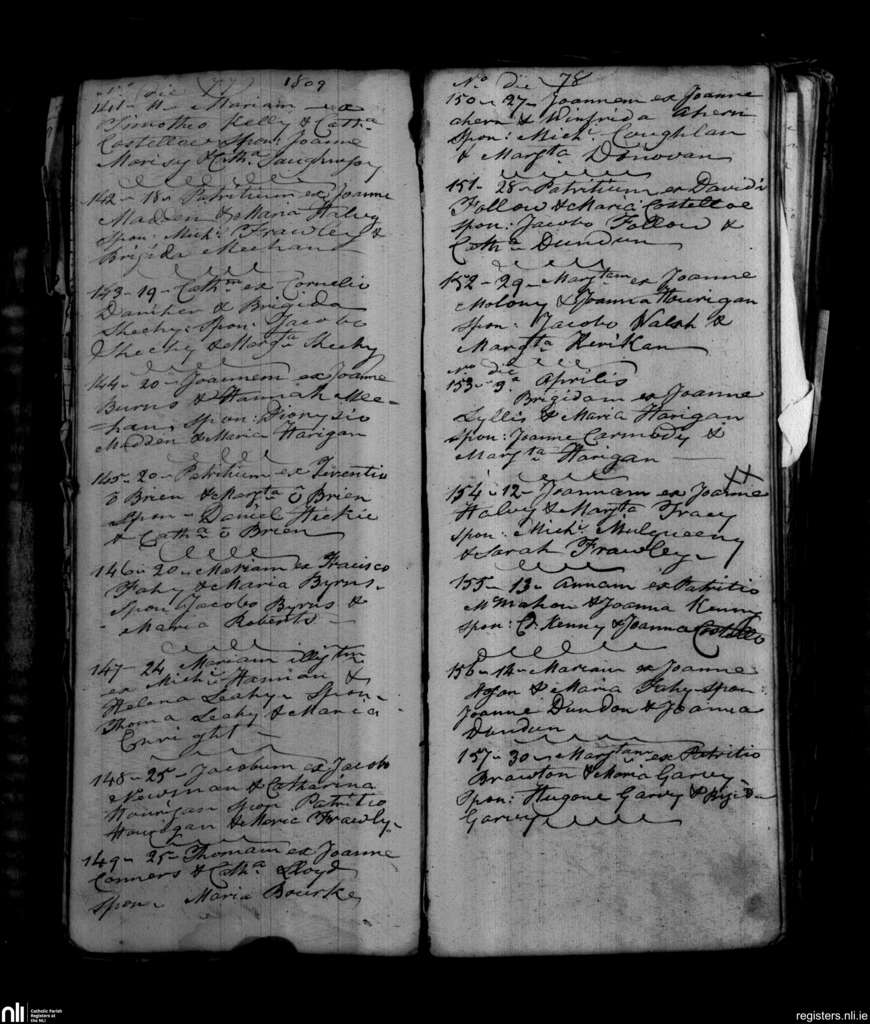 No. die 77 1809
141 - 11 - Mariam ex
Timotheo Kelly & Catha
Costelloe spon: Joanne
Morisy & Catha
142 - 18 - Patritium ex Joanne
Madden & Maria Halvy
Spon: Michl Frawley &
Brigida Meehan
143 - 19 - Catham ex Cornelio
Daniher & Brigida
Sheehy Spon: Jacobo
Sheehy & Margta Sheehy
144 - 20 - Joannem ex Joanne
Burns & Hannah Mee-
han: Spon: Dionysio
Madden & Maria Harigan
145 - 20 - Patritium ex Terentio
ō Brien & Margta ō Brien
Spon - Daniel Hickie
& Catha ō Brien
146 - 20 - Mariam ex Fracisco
Fahy & Maria Byrns -
Spon Jacobo Byrns &
Maria Roberts -
147 - 24 Mariam
ex Michl &
Helena Leahy - Spon -
Thoma Leahy & Maria
Enright -
148 - 25 - Jacobum ex Jacob
Newman & Catharina
Hourigan Spon Patritio
Hourigan & Maria Frawly -
149 - 25 - Thomam ex Joanne
Conners & Catha Lloyd
Spon - Maria Bourke
No. die 78
150 - 27 - Joannem ex Joanne
ahern & Winfrida Ahern
Spon: Michl Coughlan
& Margta Donovan
151 - 28 - Patritium ex Davidi
Follow & Maria Costelloe
Spon: Jacobo Follow &
Catha Dundun
152 - 29 - Margtam ex Joanne
Molony & Joanna Hourigan
Spon: Jacobo Walsh &
Margta Kerikan
No die
153 - 9a Aprilis
Brigidam ex Joanne
Lyllis & Maria Harigan
Spon: Joanne Carmody &
Margta Harigan
154 - 12 - Joannam ex Joanne
Halvy & Margta Tracy
Spon: Michl Mulqueeny
& Sarah Frawley -
155 - 13 - Annam ex Patritio
McMahon & Joanna Kenny
Spon: Kenny & Joanna Costello
156 - 14 - Mariam ex Joanne
& Maria Fahy Spon:
Joanne Dundon & Joanna
Dundun
157 - 30 - Margtam ex Patritio
Brawton & Maria Garvy
Spon: Hugone Garvy & Brigida
Garvy
nli
Catholic Parish
Registers at
the NLI
registers.nli.ie